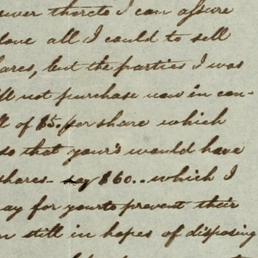 swer thereto I can assure
done all I could to sell
hares, but the parties I was
ill not purchase now in con-
lt of $5. per share which
so that your's would have
shares - say $60.. which I
ay for yours to prevent their
m still in hopes of disposing